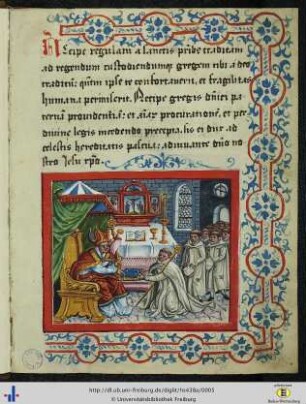 Accipe regulam a sanctis pr̄ibꝰ traditam
ad regendum custodiendumqꝫ gregem tibi a deo
traditū: qn̄tum ipse te confortauerit, et fragilitas
humana permiserit. Recipe gregis dn̄ici pa
ternā prouidentiā: et procurationē. et per
diuine legis incedendo precepta sis ei dux ad
celestis hereditatis pascua: adiuuante dn̄o no
stro Jesu xp̄o.
http://dl.ub.uni-freiburg.de/diglit/hs438a/0005
© Universitätsbibliothek Freiburg